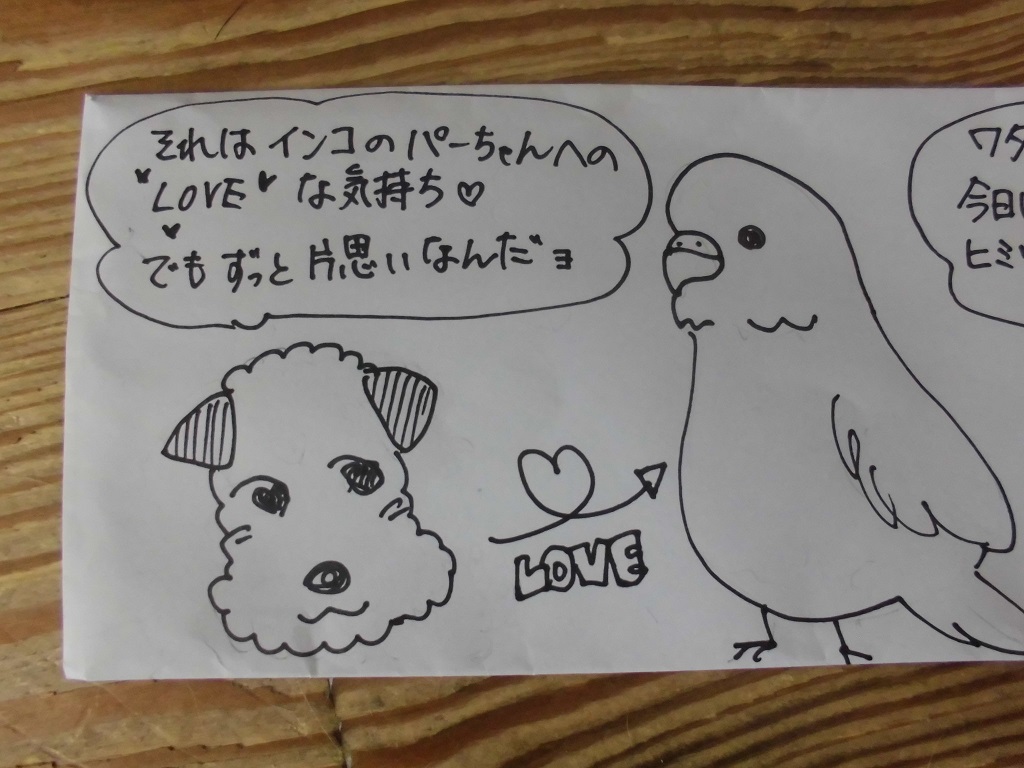 それはインコのパーちゃんへの
"LOVE"な気持ち♡
でもずっと片思いなんだョ
LOVE
ワタ
今日
ヒミ